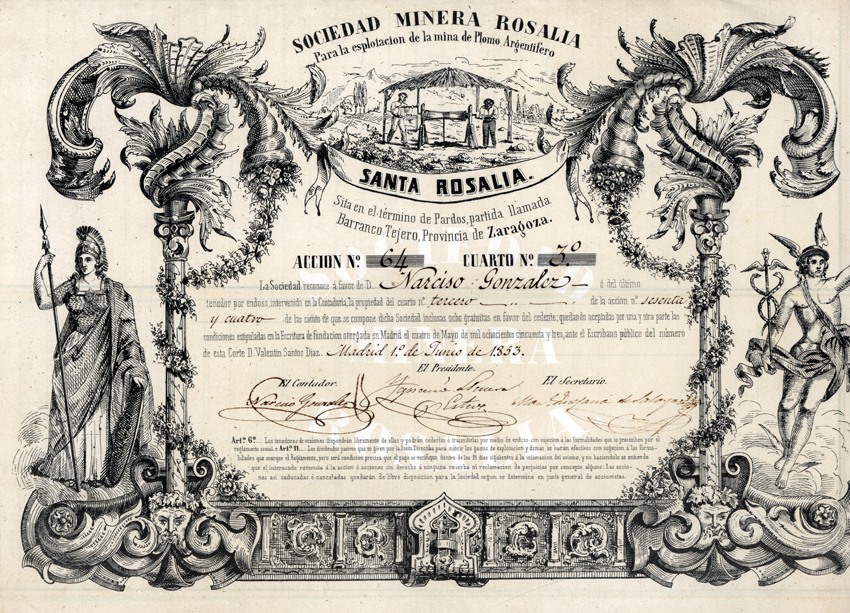 SOCIEDAD MINERA ROSALIA
Para la esplotacion de la mina de Plomo Argentifero
SANTA ROSALIA.
Sita en el término de Pardos, partida llamada
Barranco Tejero, Provincia de Zaragoza.
ACCION Nº 64 CUARTO Nº 3º
La Sociedad reconoce á favor de D. Narciso Gonzalez ó del último
tenedor por endoso, intervenido en la Contaduría, la propiedad del cuarto nº. tercero de la accion nº. sesenta
y cuatro de las ciento de que se compone dicha Sociedad inclusas ocho gratuitas en favor del cedente; quedando aceptadas por una y otra parte las
condiciones estipuladas en la Escritura de Fundacion otorgada en Madrid el cuatro de Mayo de mil ochocientos cincuenta y tres, ante el Escribano público del número
de esta Corte D. Valentin Santos Diaz. Madrid 1º de Junio de 1853.
El Presidente.
El Contador. El Secretario.
Narciso Gonzalez
Art.º 6º. Los tenedores de acciones dispondrán libremente de ellas y podrán cederlas ó trasmitirlas por medio de endoso con sujecion á las formalidades que se prescriben por el
reglamento social. = Art.º 11. Los dividendos pasivos que se giren por la Junta Directiva para cubrir los gastos de esplotacion y demas se harán efectivos con sujecion á las forma-
lidades que marque el Reglamento, pero será condicion precisa que el pago se verifique dentro de los 15 dias siguientes á la intimacion del mismo, y no haciéndolo se entiende
que el interesado renuncia á la accion ó acciones sin derecho á ninguna reserva ni reclamacion de perjuicios por concepto alguno. Las accio-
nes asi caducadas ó canceladas quedarán de libre disposicion para la Sociedad segun se determine en junta general de accionistas.